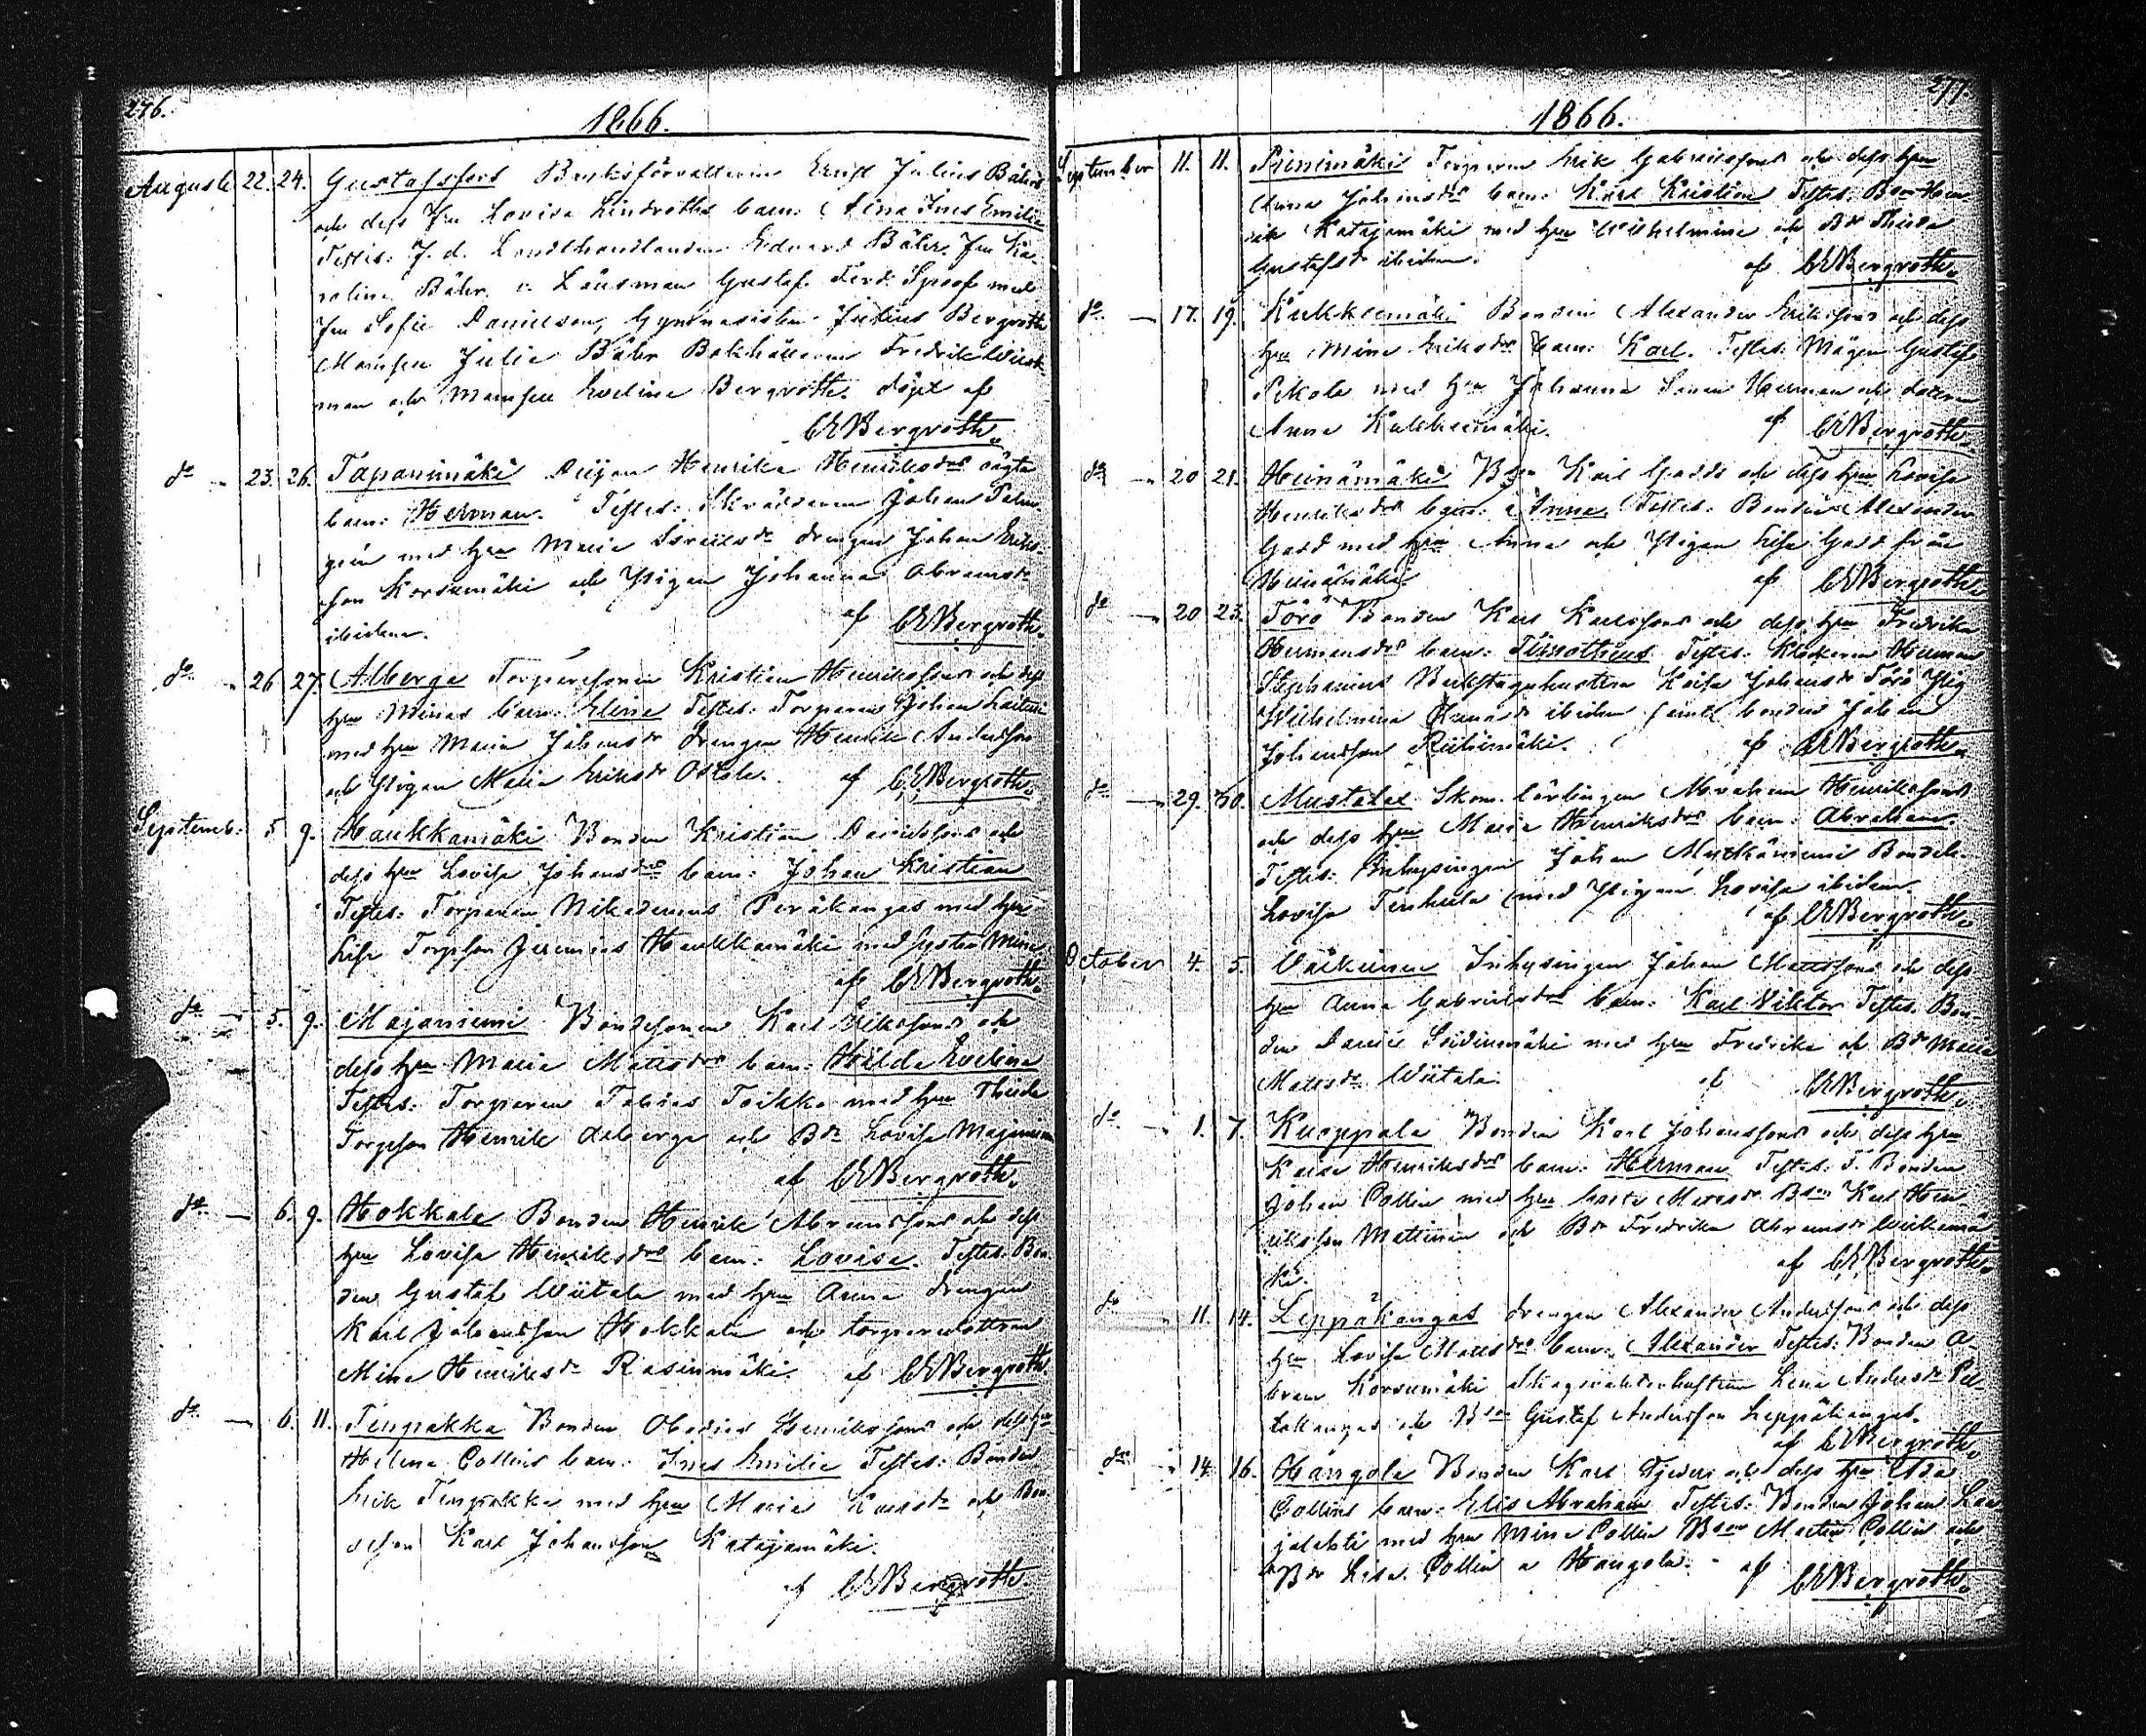 276.
1866.
Augusti 22. 24. Gustafsfors Bruksförvaltaren Ernst Julius Bährs
och dess fru Lovisa Lindroths barn: Aina Ines Emilie
Testes: f. d. Landthandlanden Edvard Bähr, fru Ka-
rolina Bähr, Länsman Gustaf Ferd. Spoof med
fru Sofie Danielson, Gymnasisten Julius Bergroth
Mamsell Julie Bähr Bokhållaren Fredrik
man och Mamsell Evelina Bergroth. döpt af
CEBergroth.
do — 23. 26. Tapanimäki Pigan Henrika Henriksdrs oägta
barn: Herman. Testes: Skräddaren Johan Palm
gren med hu Maria Israelsdr drengen Johan Eriks-
son Korsumäki och Pigan Johanna Abramsdr
ibidem. af CEBergroth.
do — 26 27. Alberga Torparesonen Kristian Henrikssons och dess
hu Minas barn: Elina Testes: Torparen Johan
med hu Maria Johansdr drengen Henrik Andersson
och Pigan Maria Eriksdr Ostola. af CEBergroth.
Septemb: 5 9. Haukkamäki Bonden Kristian Davidssons och
dess hu Lovisa Johansdrs barn: Johan Kristian
Testes: Torparen Nikademus Peräkangas med hu
Lisa Torpson Jeremias Haukkamäki med syster Mina
af CEBergroth.
do — 5. 9. Majaniemi Bondesonen Karl Erikssons och
dess hu Maria Mattsdrs barn: Hilda Evelina
Testes: Torparen Tobias Toikka med hu Theda
Torpson Henrik Alberga och Bdr Lovisa Majaniemi
af CEBergroth.
do — 6. 9. Hokkala Bonden Henrik Abramssons och dess
hu Lovisa Henriksdrs barn: Lovisa. Testes: Bon-
den Gustaf Wiitala med hu Anna drengen
Karl Johansson Hokkala och torparedottren
Mina Henriksdr Rasinmäki. af CEBergroth.
do — 6. 11. Tengpakka Bonden Obedias Henrikssons och dess hu
Helena Collins barn: Ines Emilie Testes: Bonden
Erik Tengpakka med hu Maria Karlsdr och Bon-
desson Karl Johansson Katajamäki.
af CEBergroth.
277.
1866.
September 11. 11. Pienimäki Torparen Erik Gabrielssons och dess hu
Anna Johansdrs barn: Karl Kristian Testes: Bson Hen-
rik Katajamäki med hu Wilhelmina och Bdr Theda
Gustafsdr ibidem. af CEBergroth.
do — 17. 19. Kukkeemäki Bonden Alexander Erikssons och dess
hu Mina Eriksdrs barn: Karl. Testes: Mågen Gustaf
Pikola med hu Johanna Sonen Herman och dottren
Anna Kukkeemäki. af CEBergroth.
do — 20 21. Heinämäki Bson Karl Gadds och dess hu Lovisa
Henriksdrs barn: Anna. Testes: Bonden Alexander
Gadd med hu Anna och Pigan Lisa Gadd från
Heinämäki. af CEBergroth.
do — 20 23. Törö Bonden Karl Karlssons och dess hu Fredrika
Hermansdrs barn: Timotheus Testes: Klockaren Herman
Stephanius Kaisa Johansdr Törö Pig
Wilhelmina ibidem samt bonden Johan
Johansson Riihimäki. af CEBergroth.
do — 29. 30. Mustalax Skom. lärlingen Abraham Henrikssons
och dess hu Maria Henriksdrs barn: Abraham.
Testes: Inhysingen Johan Mustaniemi
Lovisa Tenhula med Pigan Lovisa ibidem.
af CEBergroth.
October 4. 5. Wälkinen Inhysingen Johan Mattssons och dess
hu Anna Gabrielsdrs barn: Karl Viktor Testes. Bon-
den Daniel Soidinmäki med hu Fredrika och Bdr Maria
Mattsdr Wiitala. af CEBergroth.
do — 1. 7. Kuoppala Bonden Karl Johanssons och dess hu
Kaisa Henriksdrs barn: Herman Testes: f. Bonden
Johan Collin med hu Mattsdr Bson Karl Hen-
riksson Mattinen och Bdr Fredrika Abramsdr Wiikamä
ki. af CEBergroth.
do 11. 14. Leppäkangas drengen Alexander Anderssons och dess
hu Lovisa Mattsdrs barn: Alexander Testes: Bonden A-
bram Korsumäki Skogvaktarhustrun Lena Andersdr Pel-
tokangas och Bson Gustaf Andersson Leppäkangas.
af CEBergroth.
do — 14. 16. Hangola Bonden Karl Tjeders och dess hu Ida
Collins barn: Elis Abraham Testes: Bonden Johan Laa
jalahti med hu Mina Collin Bson Martin Collin och
Bdr Lisa Collin a Hangola. af CEBergroth.